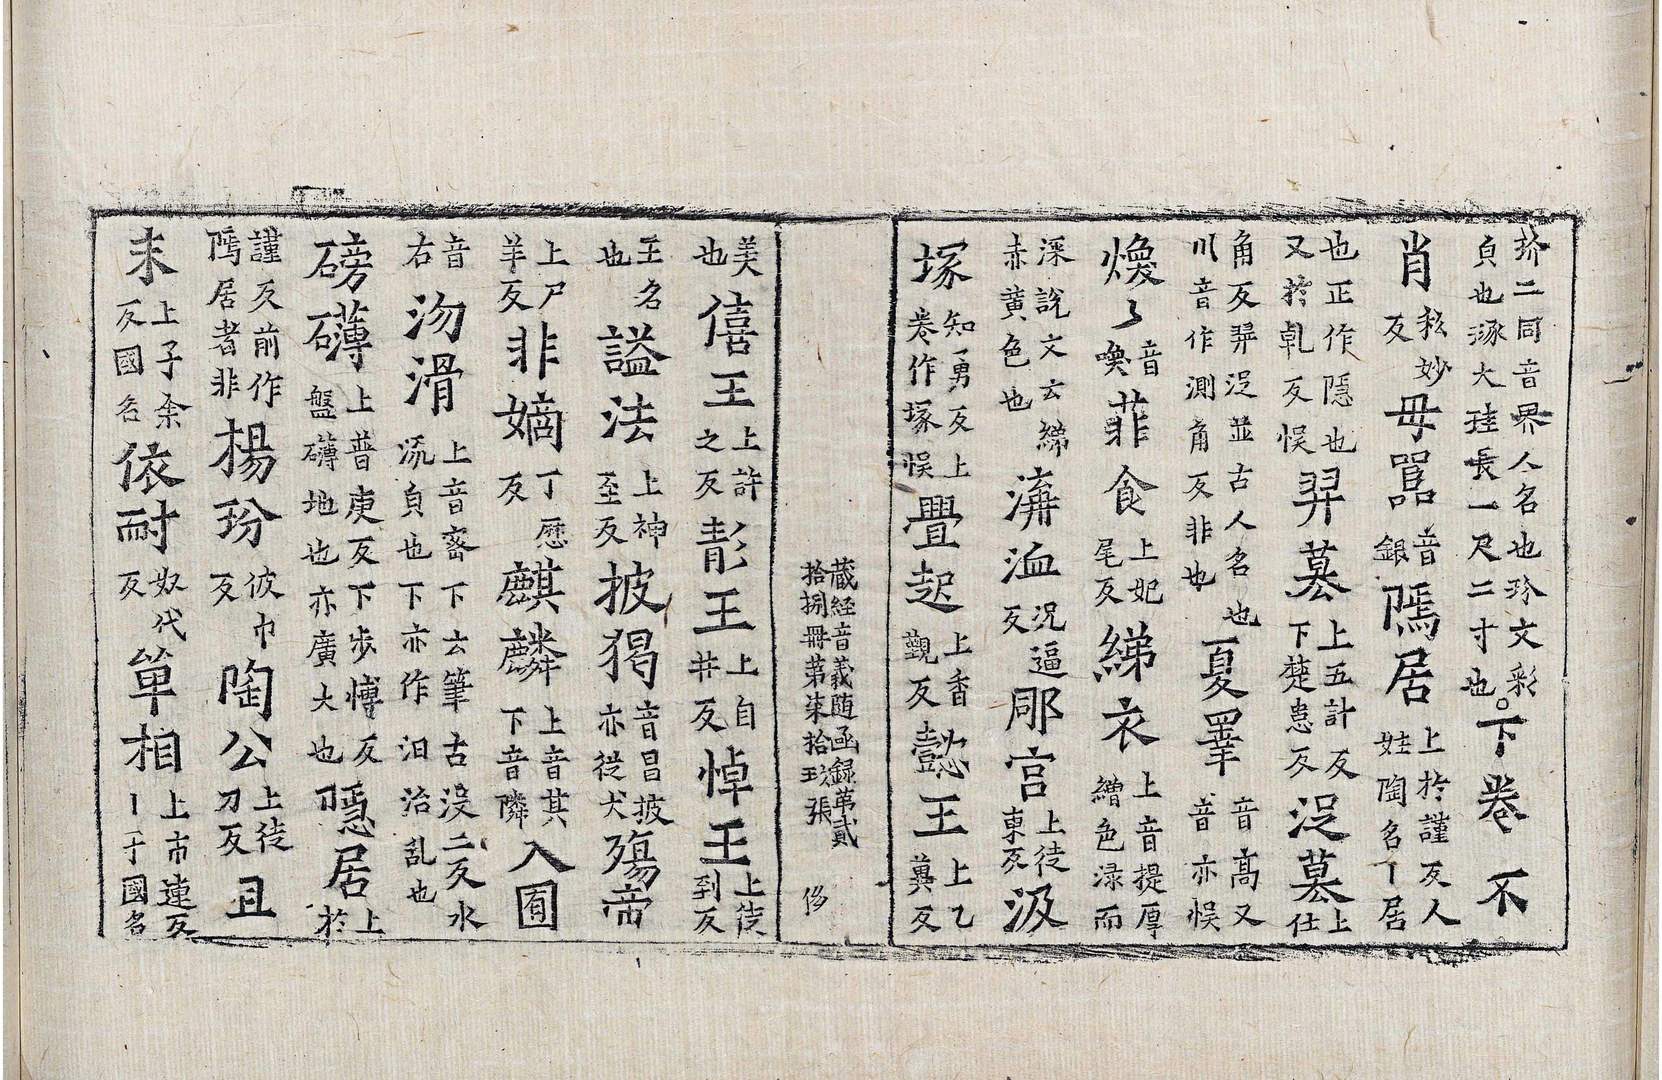 玠二同音界人名也玢文彩
貞也琢大珪長一尺二寸也。下卷不
肖私妙反毋嚚音銀隖居上於謹反人娃陶名丨居
也正作隱也又於乹反悮羿墓上五計反下楚患反浞墓上仕
角反羿浞並古人名也川音作測角反非也夏睪音高又音亦悮
煥〻音喚菲食上妃尾反綈衣上音提厚繒色渌而
深說文云綈赤黄色也溝洫況逼反郮宫上徒東反汲
塚知勇反上卷作塚悮舋起上香觀反懿王上乙兾反
蔵經音義随函録苐貳
拾捌冊苐柒拾玖張
侈
美也僖王上許之反靘王上自井反悼王上徒到反
王名也謚法上神至反披猖音昌披亦從犬殤帝
上尸羊反非嫡丁歷反麒麟上音其下音隣入囿
音右沕滑上音密下云筆古没二反水流貞也下亦作汩治乱也
磅礴上普庚反下步愽反盤礴地也亦廣大也隱居上於
謹反前作隖居者非楊玢彼巾反陶公上徒刀反且
末上子余反國名依耐奴代反單相上市連反丨于國名